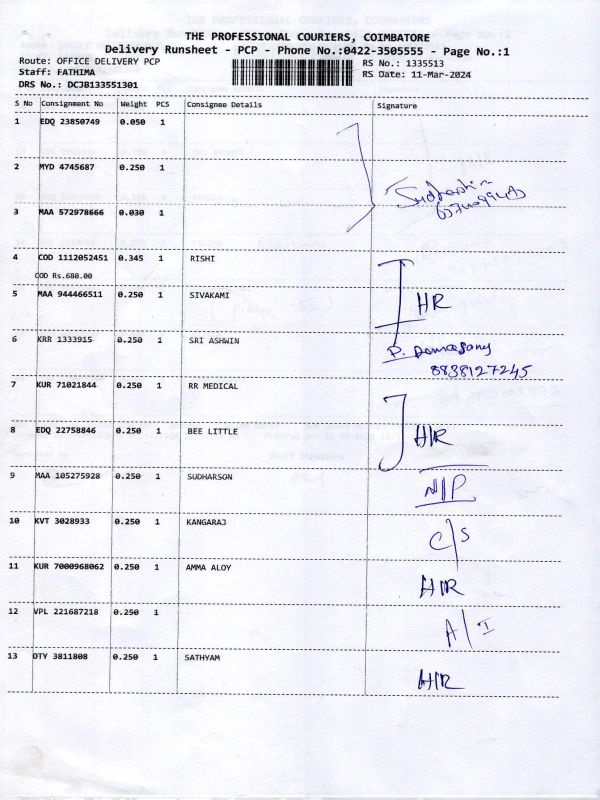 THE PROFESSIONAL COURIERS, COIMBATORE
Delivery Runsheet - PCP - Phone No.:0422-3505555 - Page No.:1
Route: OFFICE DELIVERY PCP
RS No.: 1335513
Staff: FATHIMA
RS Date: 11-Mar-2024
DRS No.: DCJB133551301
S No Consignment No Weight PCS Consignee Details Signature
1 EDQ 23850749 0.050 1
2 MYD 4745687 0.250 1
3 MAA 572978666 0.030 1
4 COD 1112052451 0.345 1 RISHI
COD Rs.680.00
5 MAA 944466511 0.250 1 SIVAKAMI HR
6 KRR 1333915 0.250 1 SRI ASHWIN P.
8838127245
7 KUR 71021844 0.250 1 RR MEDICAL
8 EDQ 22758846 0.250 1 BEE LITTLE H/R
9 MAA 105275928 0.250 1 SUDHARSON N/P
10 KVT 3028933 0.250 1 KANGARAJ C/S
11 KUR 7000968062 0.250 1 AMMA ALOY H/R
12 VPL 221687218 0.250 1 A/I
13 OTY 3811808 0.250 1 SATHYAM H/R